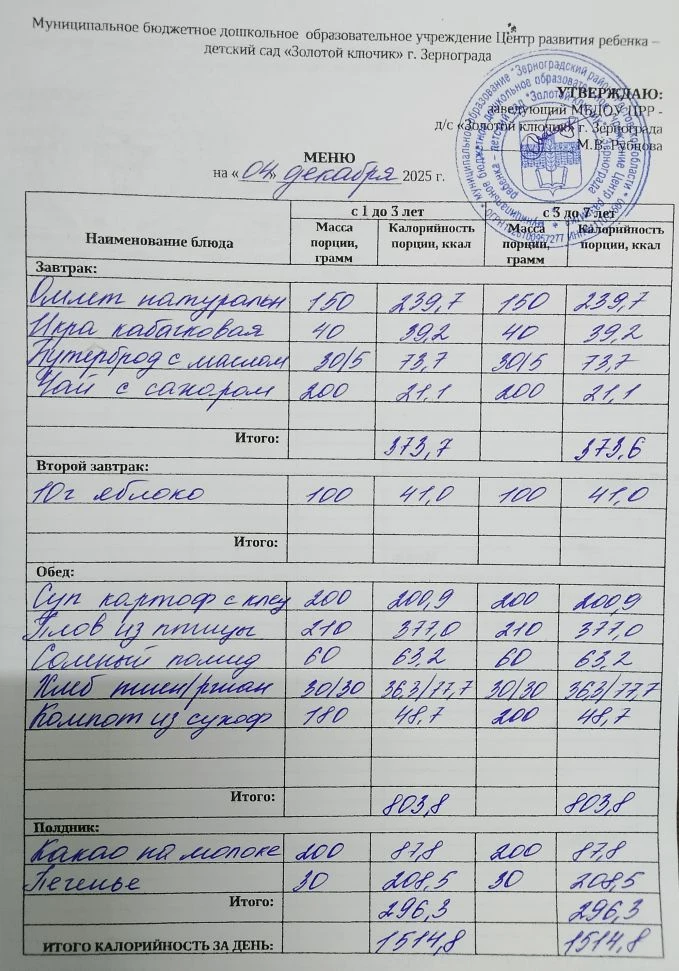 Муниципальное бюджетное дошкольное образовательное учреждение Центр развития ребенка –
детский сад «Золотой ключик» г. Зернограда
УТВЕРЖДАЮ:
заведующий МБДОУ ЦРР -
д/с «Золотой ключик» г. Зернограда
М.В. Рубцова
МЕНЮ
на «04» декабря 2025 г.
Наименование блюда с 1 до 3 лет с 3 до 7 лет
Масса порции, грамм Калорийность порции, ккал Масса порции, грамм Калорийность порции, ккал
Завтрак:
Омлет натуральн 150 239,7 150 239,7
Икра кабачковая 40 39,2 40 39,2
Бутерброд с маслом 30/5 73,7 30/5 73,7
Чай с сахаром 200 21,1 200 21,1
Итого: 373,7 373,6
Второй завтрак:
10г яблоко 100 41,0 100 41,0
Итого:
Обед:
Суп картоф с клец 200 200,9 200 200,9
Плов из птицы 210 377,0 210 377,0
помид 60 63,2 60 63,2
Хлеб пшен/ржан 30/30 36,3/77,7 30/30 36,3/77,7
Компот из сухоф 180 48,7 200 48,7
Итого: 803,8 803,8
Полдник:
Какао на молоке 200 87,8 200 87,8
Печенье 30 208,5 30 208,5
Итого: 296,3 296,3
ИТОГО КАЛОРИЙНОСТЬ ЗА ДЕНЬ: 1514,8 1514,8